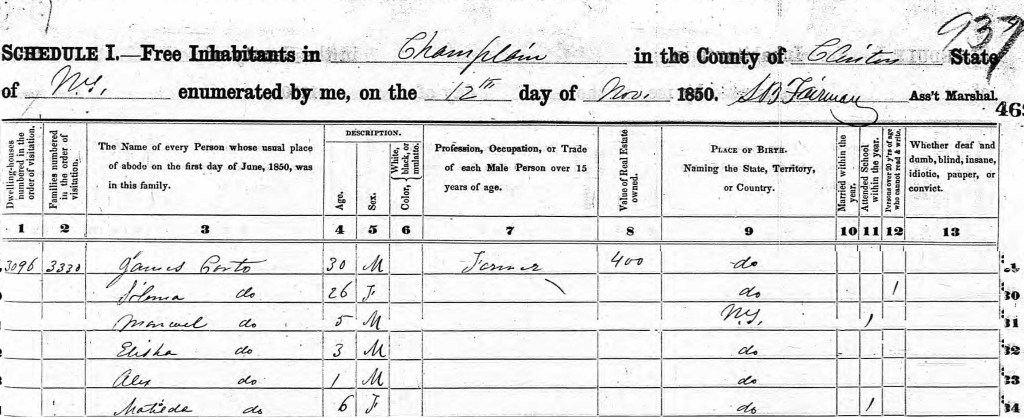 937
SCHEDULE I.—Free Inhabitants in Champlain in the County of Clinton State
of N.Y. enumerated by me, on the 12th day of Nov. 1850. S B Fairman Ass't Marshal.
463
Dwelling-houses numbered in the order of visitation.
Families numbered in the order of visitation.
The Name of every Person whose usual place of abode on the first day of June, 1850, was in this family.
DESCRIPTION.
Age.
Sex.
Color, White, black, or mulatto.
Profession, Occupation, or Trade of each Male Person over 15 years of age.
Value of Real Estate owned.
PLACE OF BIRTH. Naming the State, Territory, or Country.
Married within the year.
Attended School within the year.
Persons over 20 y'rs of age who cannot read & write.
Whether deaf and dumb, blind, insane, idiotic, pauper, or convict.
1 2 3 4 5 6 7 8 9 10 11 12 13
3096 3330 James Porto 30 M Farmer 400 do
do 26 F do 1 30
Manuel do 5 M N.Y. 1 31
Elisha do 3 M do 32
Alex do 1 M do 33
Matilda do 6 F do 1 34